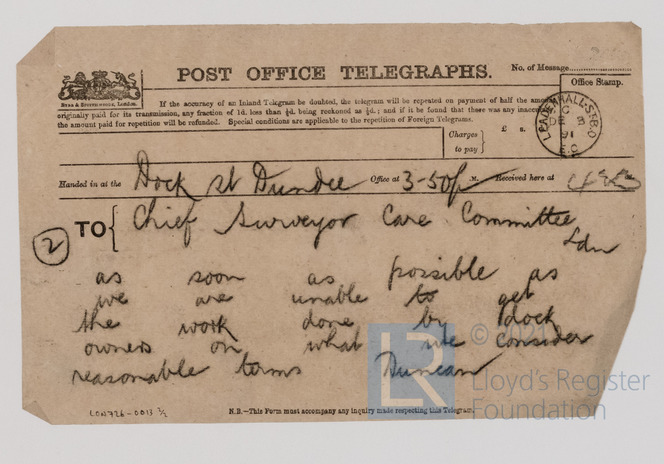 POST OFFICE TELEGRAPHS.
No. of Message
Office Stamp.
If the accuracy of an Inland Telegram be doubted, the telegram will be repeated on payment of half the amount
originally paid for its transmission, any fraction of 1d. less than ½d. being reckoned as ½d.; and if it be found that there was any inaccuracy
the amount paid for repetition will be refunded. Special conditions are applicable to the repetition of Foreign Telegrams.
Charges to pay
£ s.
LEADENHALL.ST.B.O
C
DE 3
91
E.C
Handed in at the Dock St Dundee Office at 3-50p M. Received here at
TO Chief Surveyor Care Committee
Ldn
2
as soon as possible as
we are unable to get
the work done by dock
owners on what we consider
reasonable terms Duncan
LON726-0013 ½
N.B.—This Form must accompany any inquiry made respecting this Telegram.
LR
© 2021
Lloyd's Register
Foundation